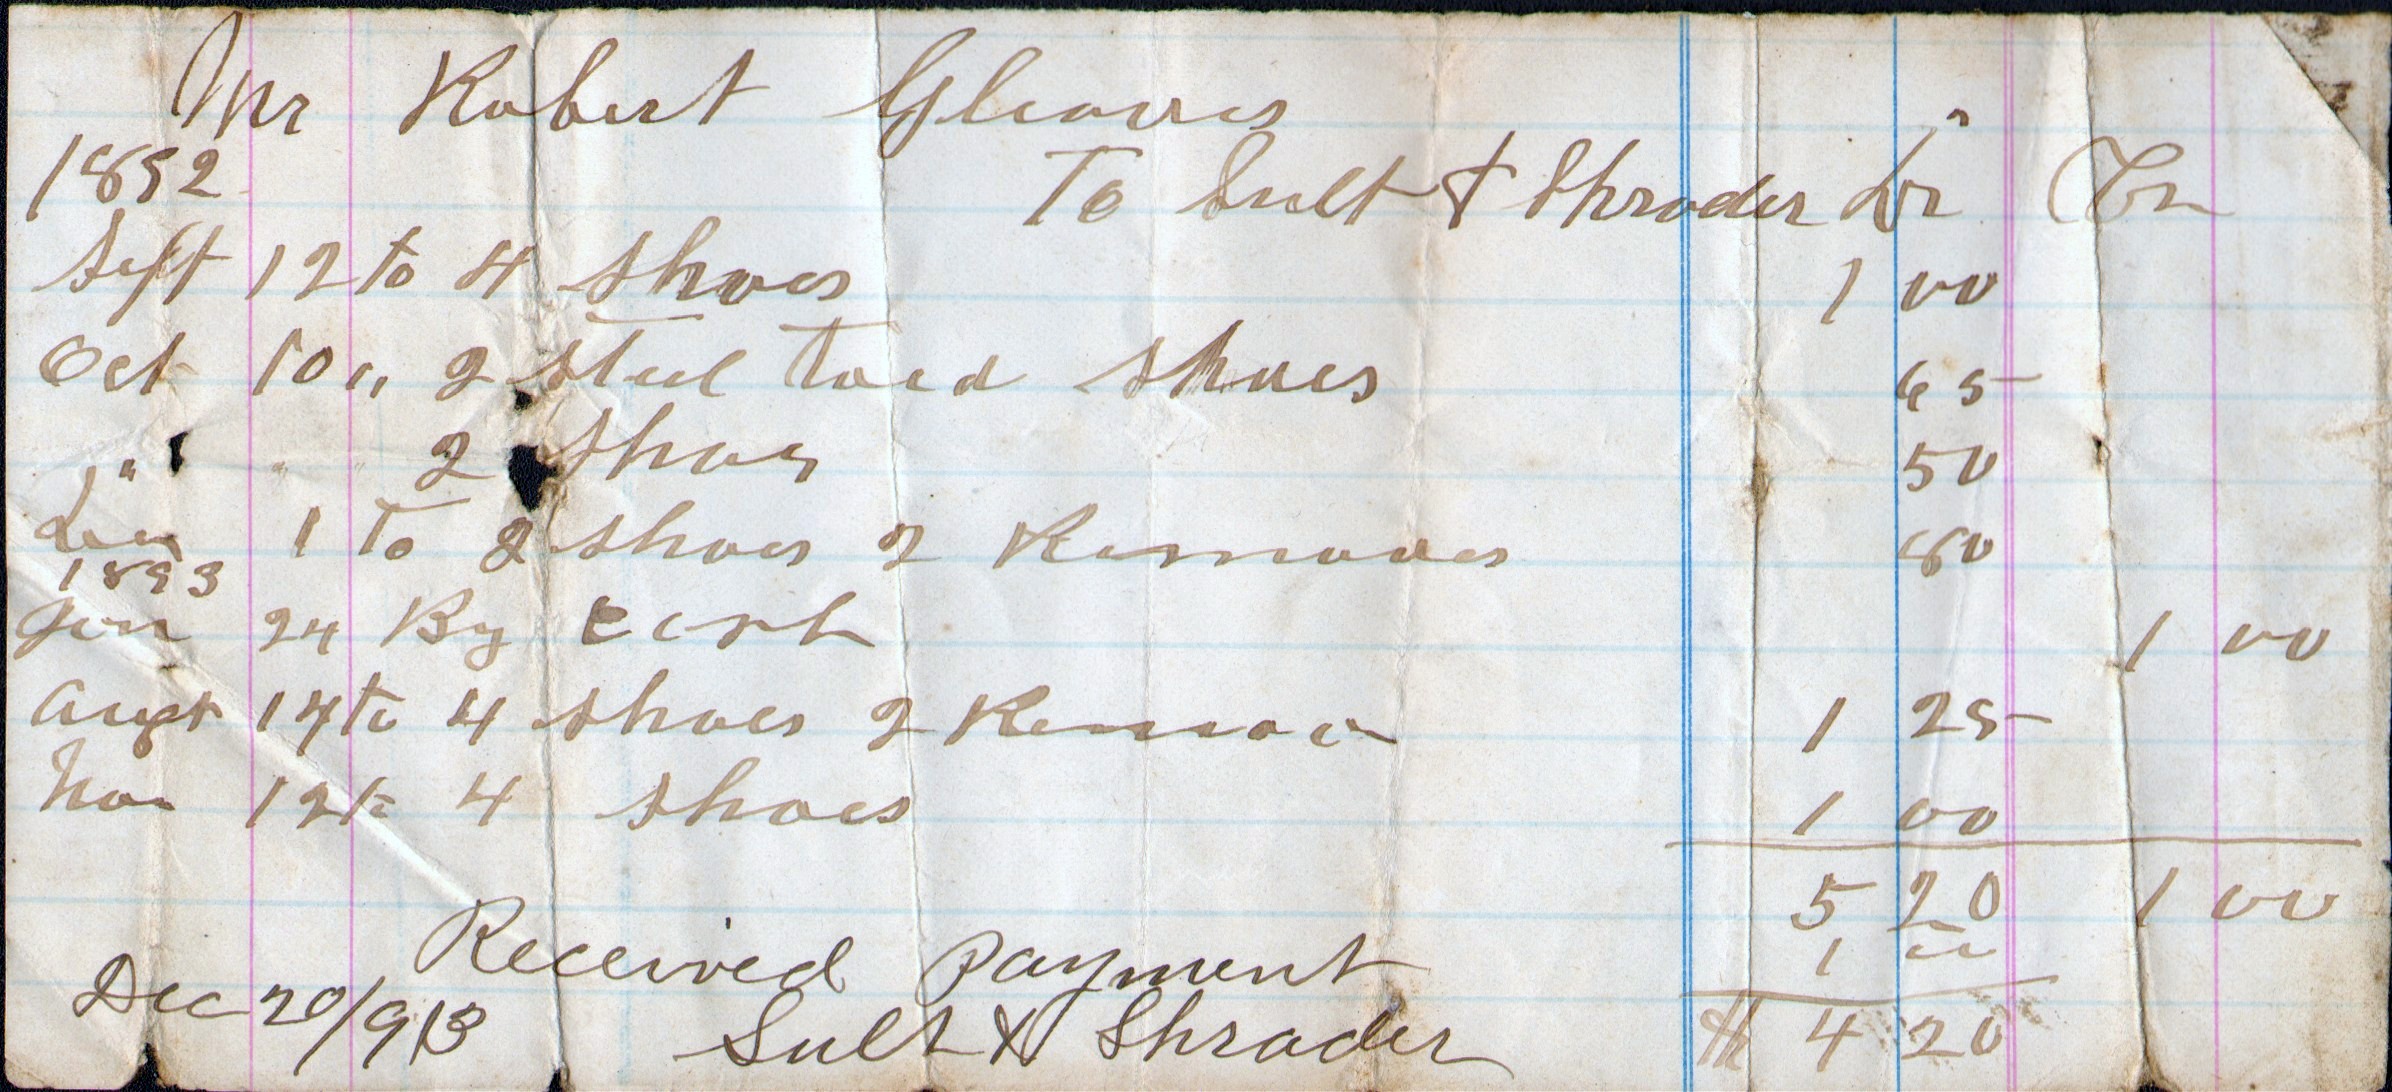 Mr Robert Gleaves
1892
To Sult & Shrader Dr Cr
Sept 12 to 4 shoes 1 00
Oct 10 " 2 steel toed shoes 65
" " " 2 shoes 50
Dec 1 To 2 shoes 2 Removes 80
1893
Jan 24 By cash 1 00
Augst 14 to 4 shoes 2 Remov 1 25
Nov 12 to 4 shoes 1 00
5 20 1 00
Received Payment 1 00
Dec 20/93 Sult & Shrader $ 4 20